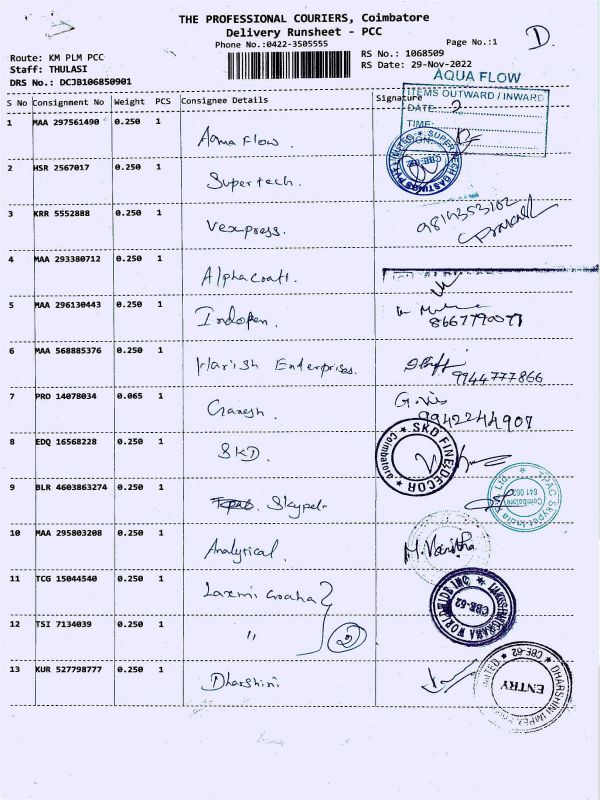 THE PROFESSIONAL COURIERS, Coimbatore
Delivery Runsheet - PCC
Phone No.:0422-3505555
Page No.:1
D
Route: KM PLM PCC
Staff: THULASI
DRS No.: DCJB106850901
RS No.: 1068509
RS Date: 29-Nov-2022
AQUA FLOW
ITEMS OUTWARD / INWARD
DATE:
TIME:
S No Consignment No Weight PCS Consignee Details Signature
1 MAA 297561490 0.250 1 Aqua Flow.
2 HSR 2567017 0.250 1 Supertech.
3 KRR 5552888 0.250 1 Vexpress.
4 MAA 293380712 0.250 1 Alphacraft.
5 MAA 296130443 0.250 1 Indopen.
8667790077
6 MAA 568885376 0.250 1 Harish Enterprises.
9944777866
7 PRO 14078034 0.065 1 Ganesh.
9942244907
8 EDQ 16568228 0.250 1 SKD.
SKD FINE DECOR
Coimbatore
9 BLR 4603863274 0.250 1 Skypet
Coimbatore
641 062
10 MAA 295803208 0.250 1 Analytical.
M. Vanitha
11 TCG 15044540 0.250 1 Laxmi Graha
12 TSI 7134039 0.250 1 "
2
CBE-62
13 KUR 527798777 0.250 1 Dharshini
CBE-62
ENTRY